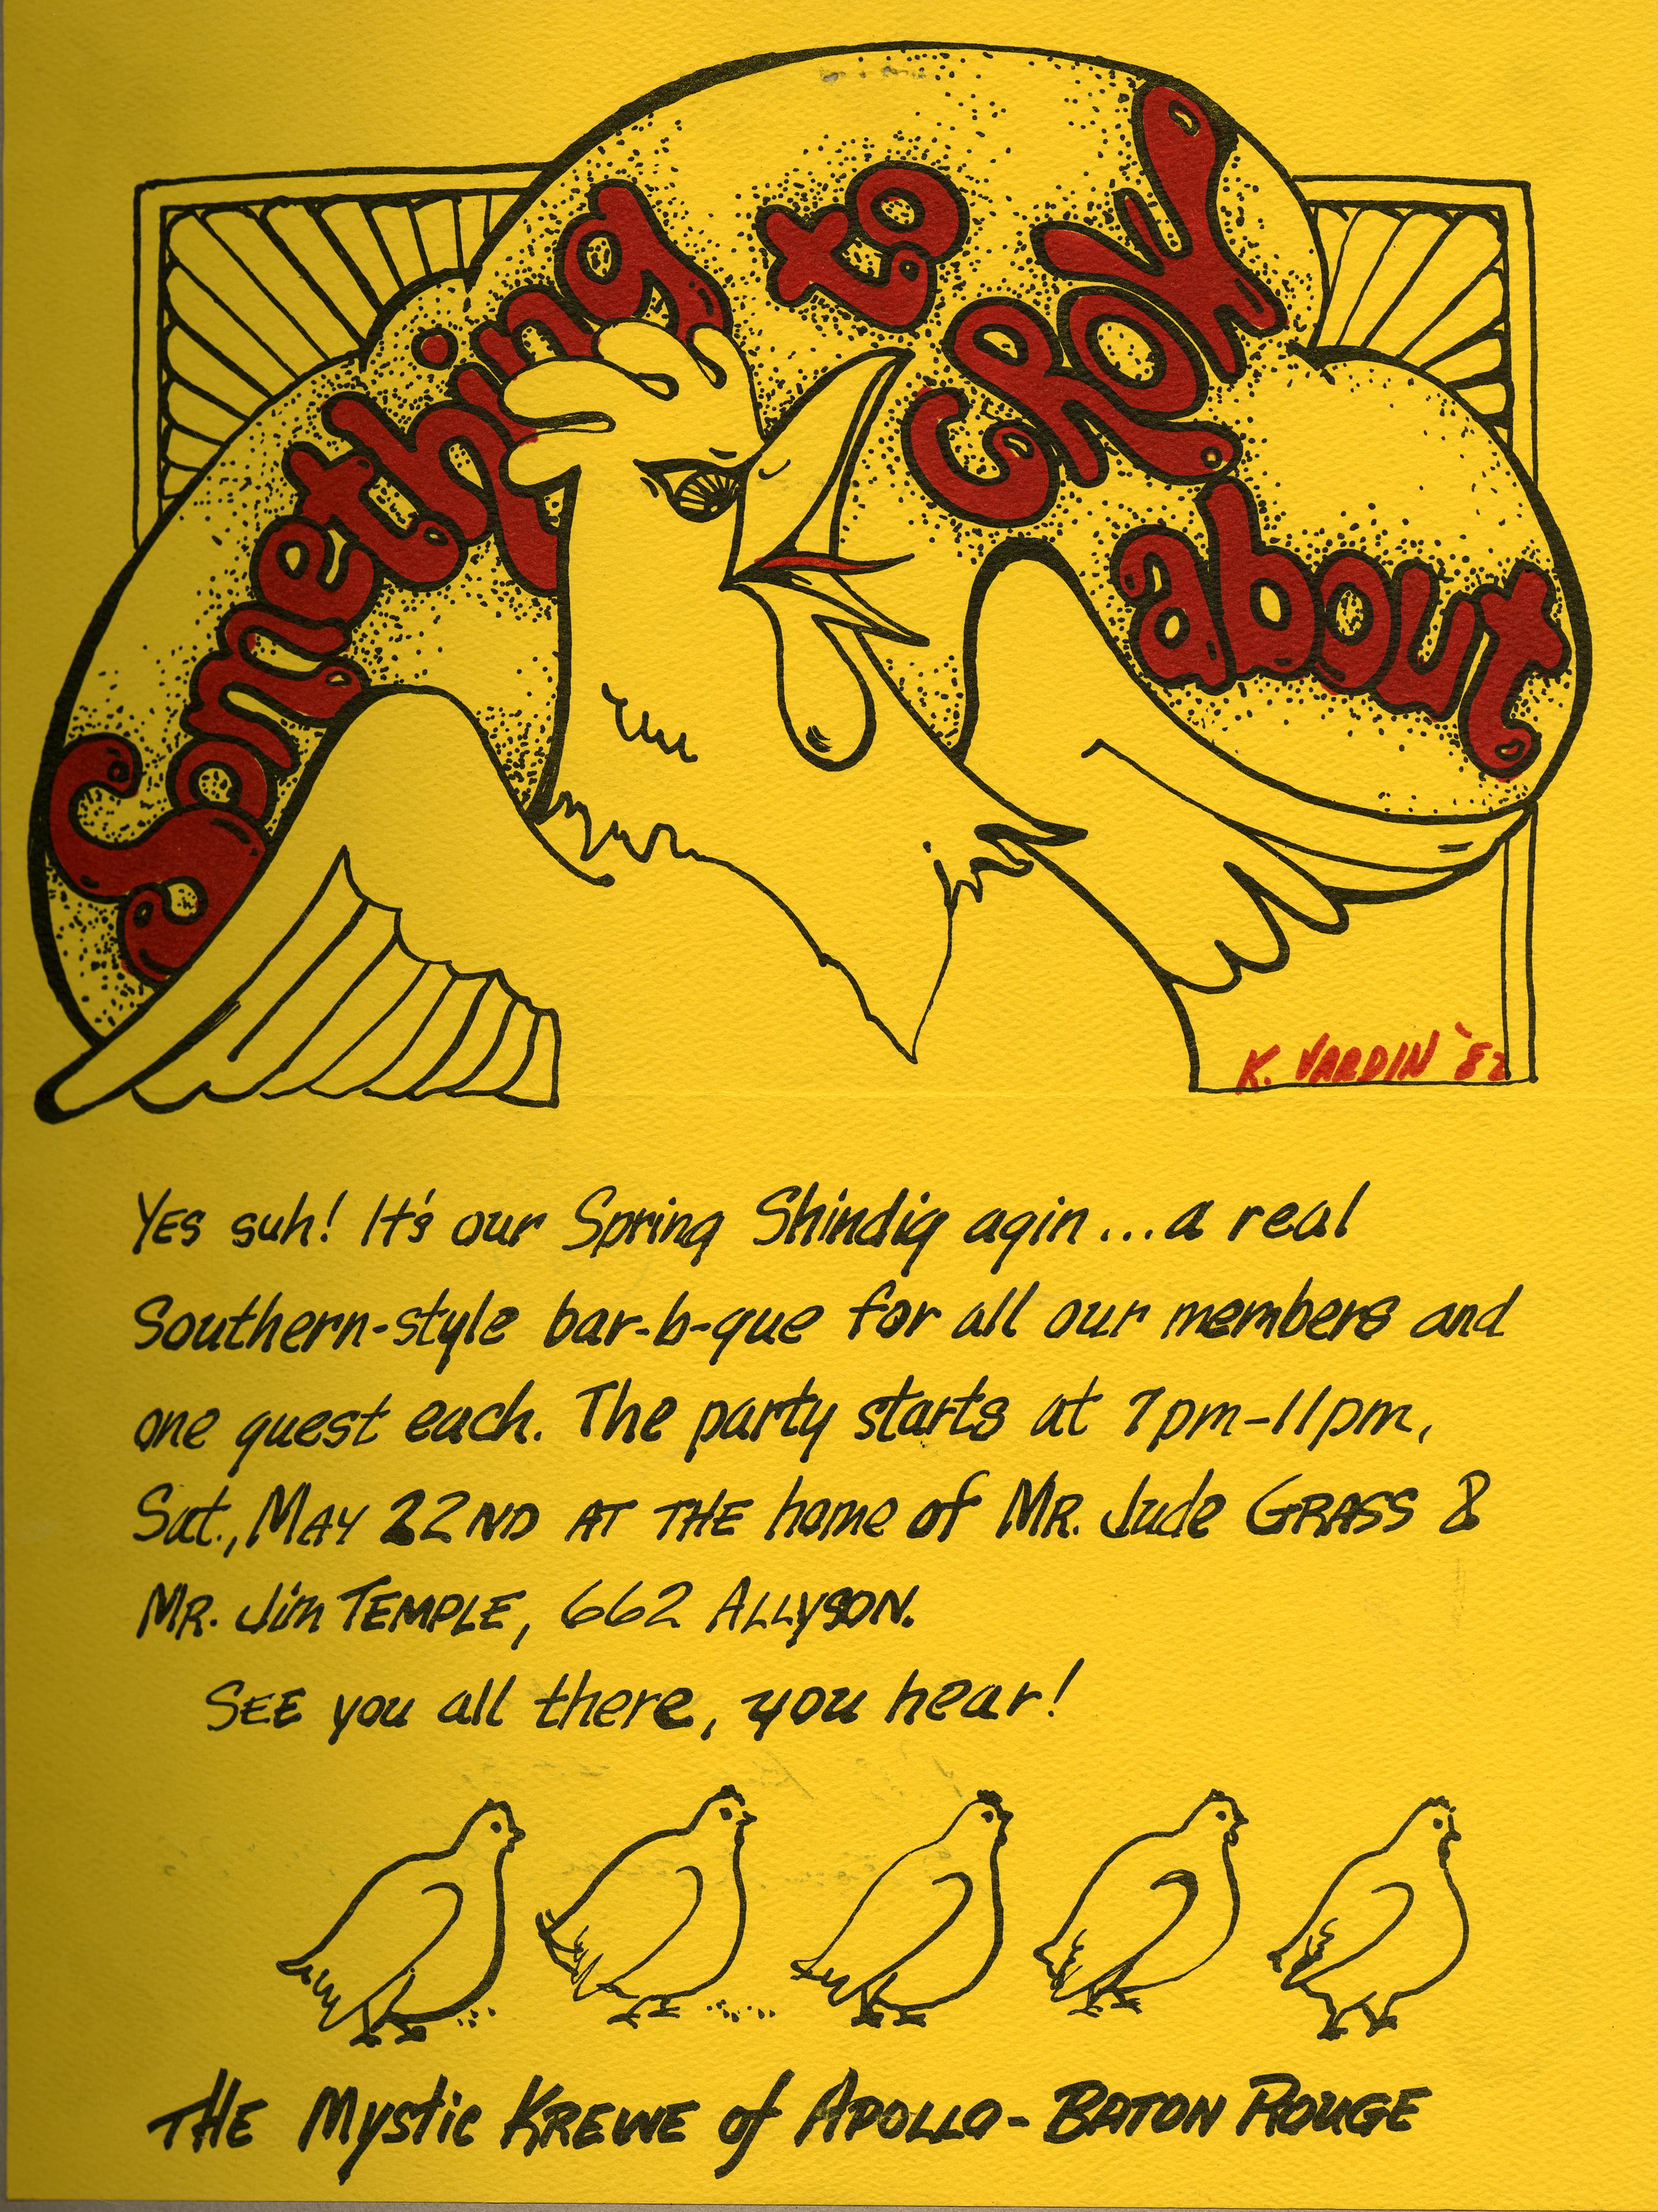 Something to CROW about
K. VARDIN '82
YES suh! It's our Spring Shindig agin...a real
Southern-style bar-b-que for all our members and
one guest each. The party starts at 7pm-11pm,
Sat., MAY 22ND AT THE home of MR. Jude GRASS &
MR. Jim TEMPLE, 662 ALLYSON.
SEE you all there, you hear!
THE Mystic KREWE of APOLLO-BATON ROUGE